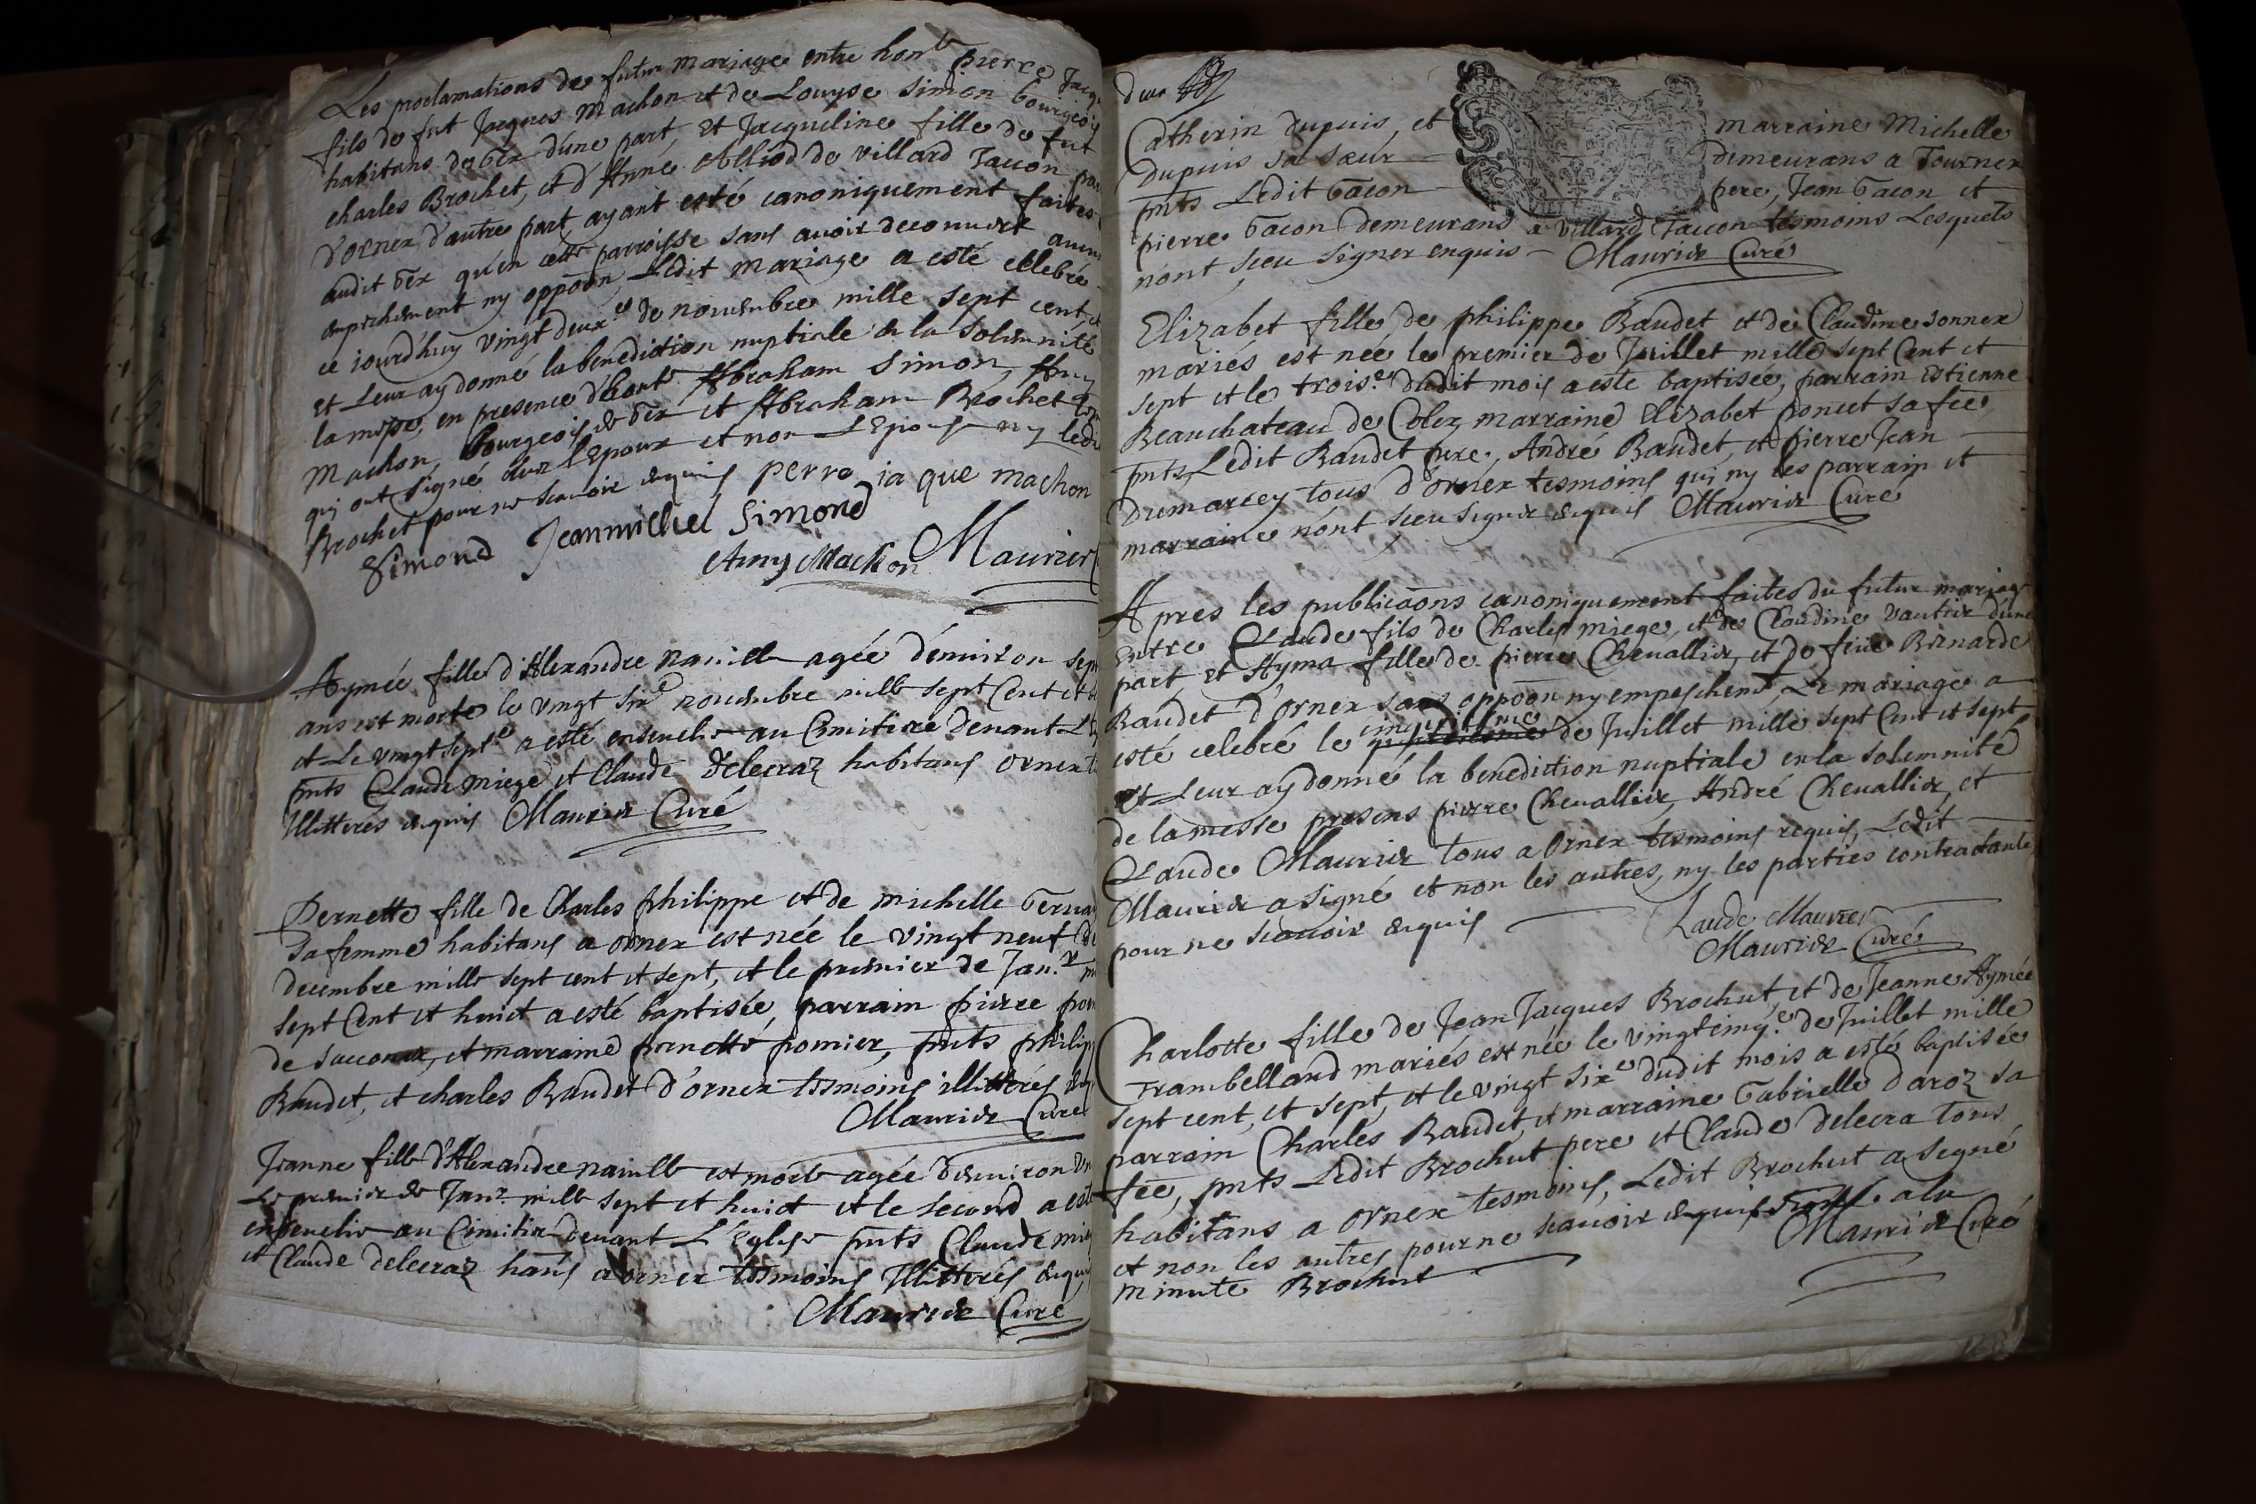 Les proclamations de futur mariage entre hon.ble pierre Jacq
fils de fut Jacques Machon et de Louyse Simon bourgeois
habitans de Gex d'une part et Jacqueline fille de fut
charles Brochet, et d'Anne Alliod de villard Taccon par
d'ornex d'autre part, ayant esté canoniquement faites
audit Gex qu'en cette parroisse sans avoir decouvert aucun
empechement ny oppoōn, Ledit mariage a esté celebré
ce jourd'huy vingt deux.e de novembre mille sept cent et
et Leur ay donné la benediction nuptiale en la solemnité
la messe, en presence d'hon.ts Abraham Simon, Amy
Machon, bourgeois de Gex et Abraham Brochet
qui ont signé avec l'Epoux et non L'Epouse ny ledi
Brochet pour ne scavoir enquis perre ja que machon
Simond Jeanmichel Simond
Amy Machon Maurier
Aymée fille d'Alexandre naville agée d'environ sept
ans est morte le vingt six.e novembre mille sept Cent et
et Le vingt sept.e a esté ensevelie au Cimitiere devant L'
pnts Claude miege et Claude Delecraz habitans ornex
Illitterés enquis Maurier Curé
Pernette fille de Charles philippe et de michelle
sa femme habitans a ornex est née le vingt neuf de
decembre mille sept cent et sept, et le premier de Jan.r m
sept Cent et huict a esté baptisée, parrain pierre pom
de sacconex, et marraine pernette pomier, pnts philip
Baudet, et charles Baudet d'ornex tesmoins illitterés
Maurier Curé
Jeanne fille d'Alexandre naville est morte agée d'environ
Le premier de Janr mille sept et huict et le second a esté
ensevelie au Cimitiere devant L'Eglise pnts Claude mie
et Claude delecraz hans a ornex tesmoins Illitterés enqui
Maurier Curé
deux
Catherin dupuis, et marraine Michelle
dupuis sa sœur demeurans a Tournex
pnts Ledit Gacon pere, Jean Gacon et
pierre Gacon demeurans a villard Taccon tesmoins Lesquels
n'ont sceu signer enquis Maurier Curé
Elizabet fille de philippe Baudet et de Claudine sonnex
mariés est née le premier de Juillet mille sept Cent et
sept et le trois.e dudit mois a esté baptisée, parrain Estienne
Beauchateau de Colex marraine Elizabet poncet sa fēe
pnts Ledit Baudet pere, André Baudet, et pierre Jean
Dumarcey tous d'ornex tesmoins qui ny les parrain et
marraine n'ont sceu signer enquis Maurier Curé
Apres les publicaōns canoniquement faites du futur mariage
entre Claude fils de Charles miege, et de Claudine vautier d'une
part et Ayma fille de pierre Chevallier, et de feüe Bernarde
Baudet d'ornex sans oppoōn ny empeschent Le mariage a
esté celebré le cinquieme de Juillet mille sept Cent et sept
et Leur ay donné la benediction nuptiale en la solemnité
de la messe presens pierre Chevallier, André Chevallier, et
Claude Maurier tous a ornex tesmoins requis, Ledit
Maurier a signé et non les autres, ny les parties contractantes
pour ne scavoir enquis
Laude Maurier
Maurier Curé
Charlotte fille de Jean Jacques Brochut, et de Jeanne Aymée
Frambellard mariés est née le vingtcinq.e de Juillet mille
sept cent, et sept, et le vingt six.e dudit mois a esté baptisée
parrain Charles Baudet, et marraine Gabrielle Daroz sa
fēe, pnts Ledit Brochut pere et Claude delecra tous
habitans a ornex tesmoins, Ledit Brochut a signé
et non les autres pour ne scavoir enquis a la
minute Brochut Maurier Curé